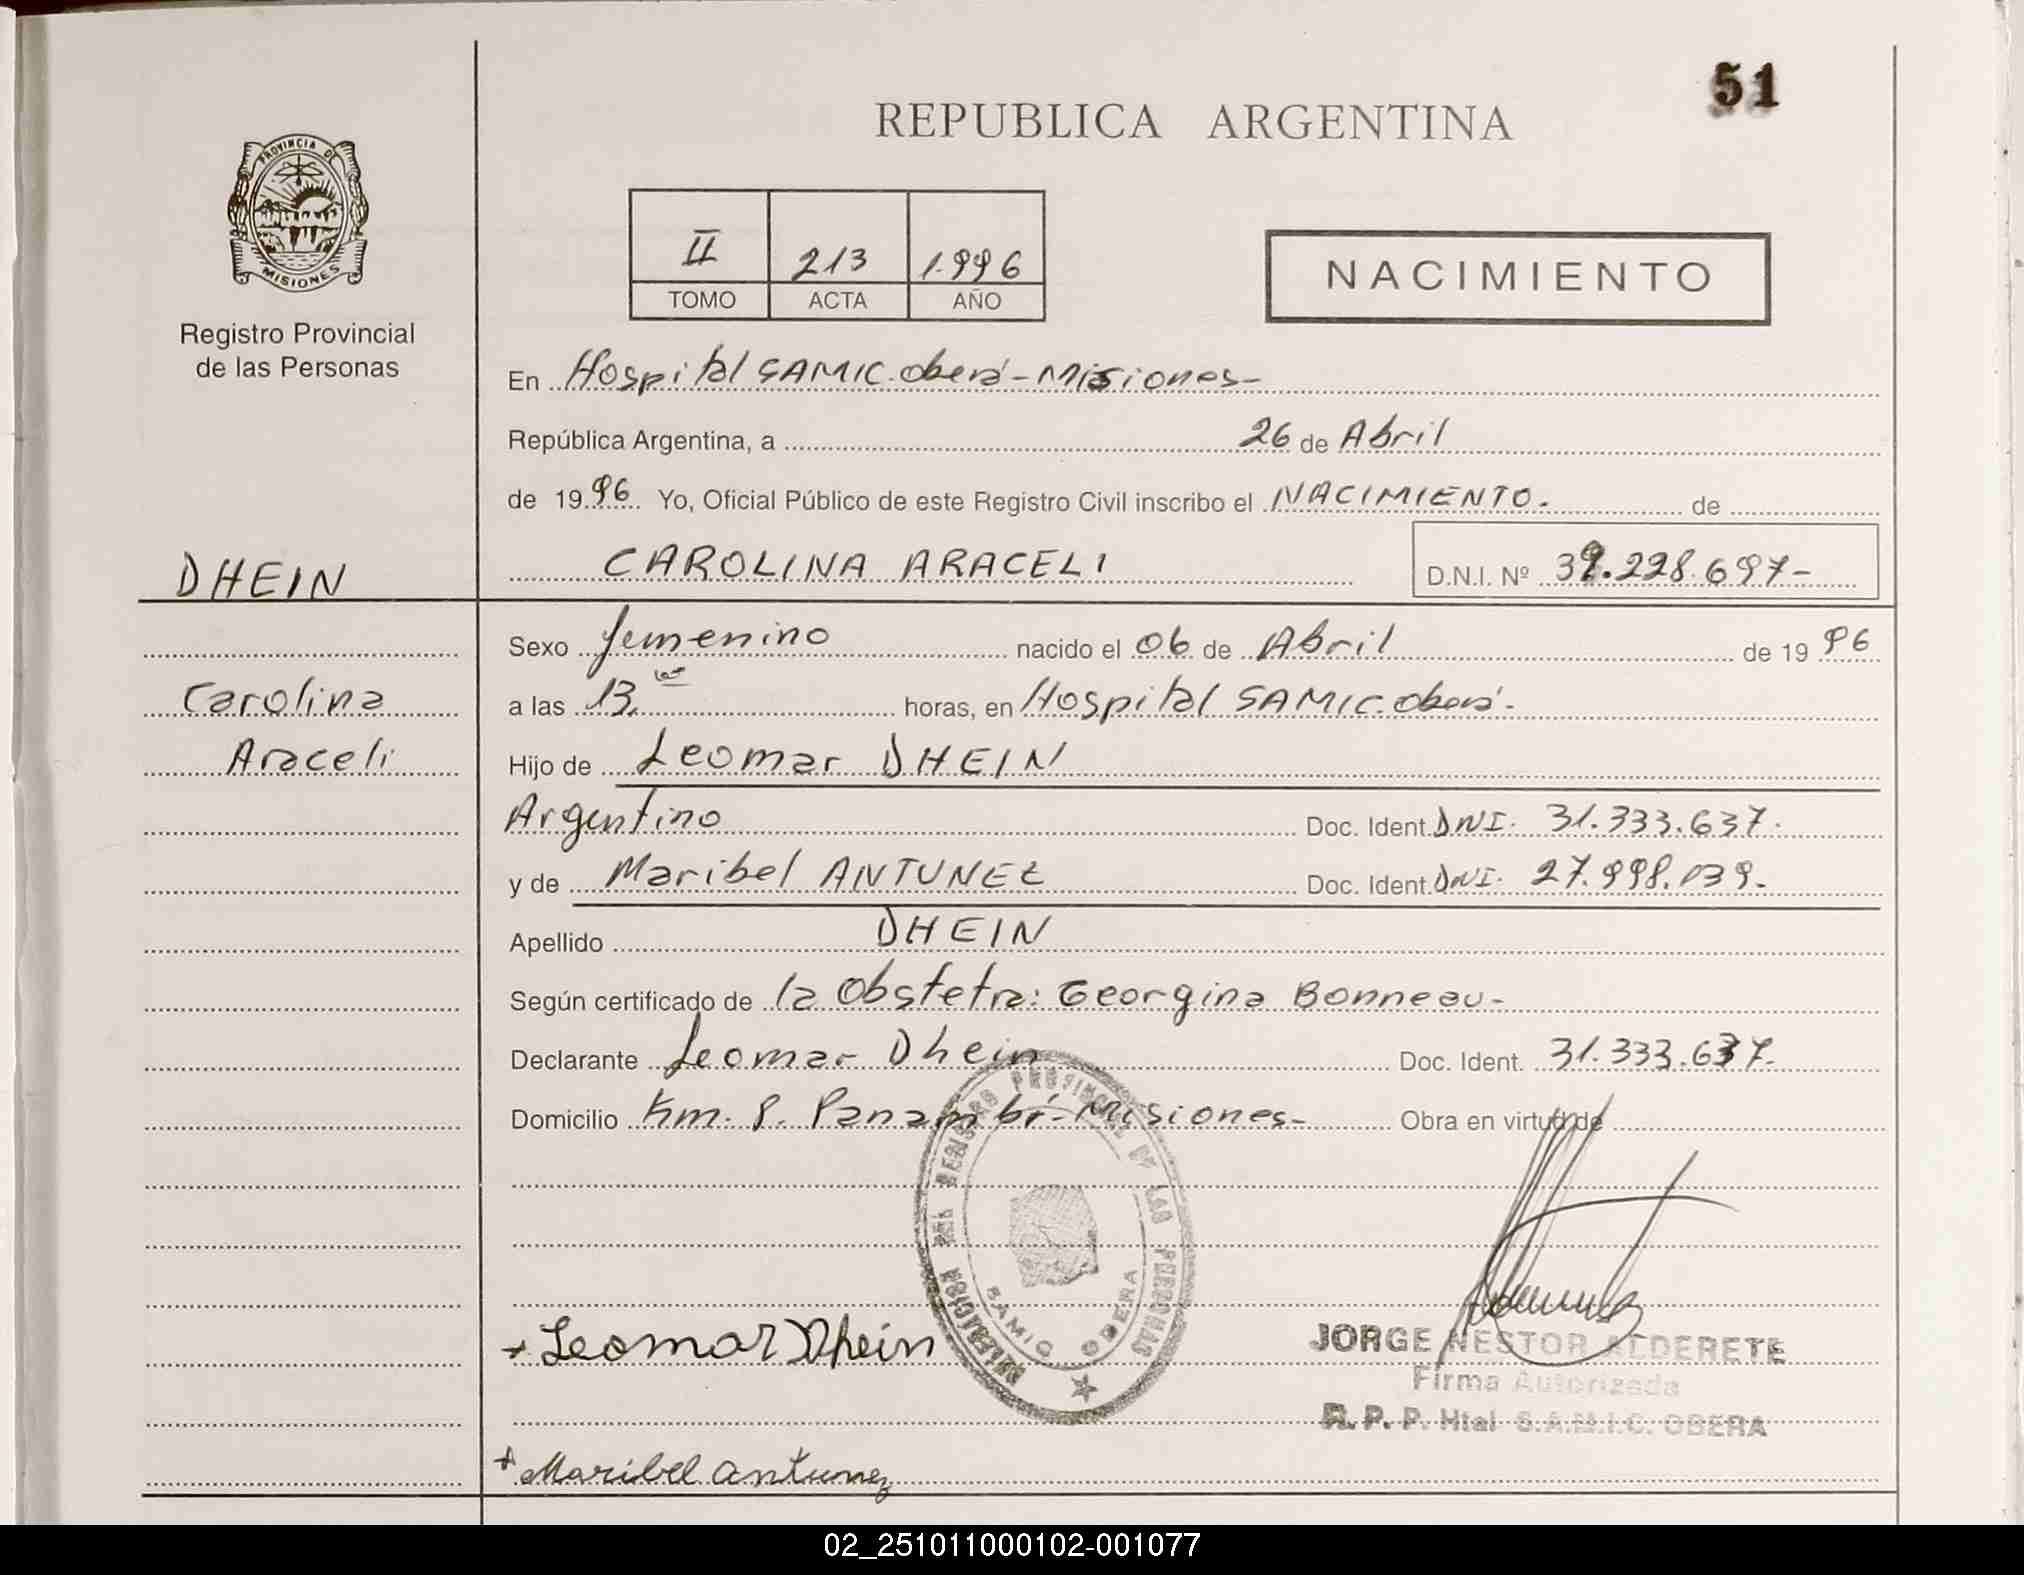 51
REPUBLICA ARGENTINA
PROVINCIA DE
MISIONES
Registro Provincial
de las Personas
II 213 1.996
TOMO ACTA AÑO
NACIMIENTO
En Hospital SAMIC. Oberá - Misiones-
República Argentina, a 26 de Abril
de 1996. Yo, Oficial Público de este Registro Civil inscribo el NACIMIENTO. de
DHEIN
CAROLINA ARACELI
D.N.I. Nº .228.697-
Sexo femenino nacido el 06 de Abril de 1996
Carolina
Araceli
a las 13, horas, en Hospital SAMIC. Oberá.
Hijo de Leomar DHEIN
Argentino Doc. Ident. DNI: 31.333.637.
y de Maribel ANTUNEZ Doc. Ident. DNI: 27.998.139.
Apellido DHEIN
Según certificado de la Obstetra: Georgina Bonneau-
Declarante Leomar Dhein Doc. Ident. 31.333.637.
Domicilio Km. 8. Panambí - Misiones- Obra en virtud de
DELEGACION DEL REGISTRO PROVINCIAL DE LAS PERSONAS
SAMIC OBERA
+ Leomar Dhein
JORGE NESTOR ALDERETE
Firma Autorizada
R. P. P. Htal S.A.M.I.C. OBERA
+ Maribel Antunez
02_251011000102-001077